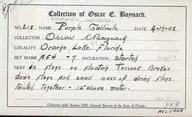 Collection of Oscar E. Baynard.
No. 218 NAME Purple Gallinule DATE 4-19-08
COLLECTOR Oscar E Baynard
LOCALITY Orange Lake, Florida.
SET MARK 25/4 - 7 INCUBATION Started
NEST In flags on floating Tussock Broken
down flags and small mass of dried flags
twisted together - 12" above water.
Collected under Permit 1908, General Game Laws of the State of Florida.